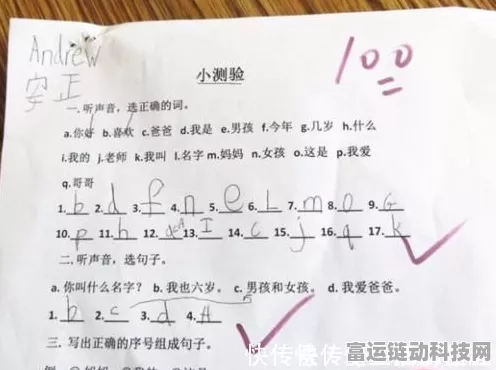 Andrew
安正
100
小测验
一.听声音，选正确的词。
a.你好 b.喜欢 c.爸爸 d.我是 e.男孩 f.今年 g.几岁 h.什么
i.我的 j.老师 k.我叫 l.名字 m.妈妈 n.女孩 o.这是 p.我爱
q.哥哥
1. b 2. d 3. f 4. n 5. e 6. L 7. m 8. o 9. G
10. p 11. h 12. 13. I 14. c 15. j 16. q 17. k
二.听声音，选句子。
a. 你叫什么名字？ b. 我也六岁。 c. 男孩和女孩。 d. 我爱爸爸。
1. b 2. c 3. d 4. A
三. 写出正确的序号组成句子。
富运链动科技网